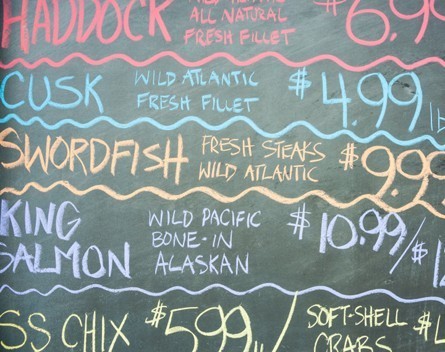 HADDOCK ALL NATURAL FRESH FILLET $6.99
CUSK WILD ATLANTIC FRESH FILLET $4.99 lb
SWORDFISH FRESH STEAKS WILD ATLANTIC $9.99
KING SALMON WILD PACIFIC BONE-IN ALASKAN $10.99/$1
SS CHIX $5.99 SOFT-SHELL CRABS $